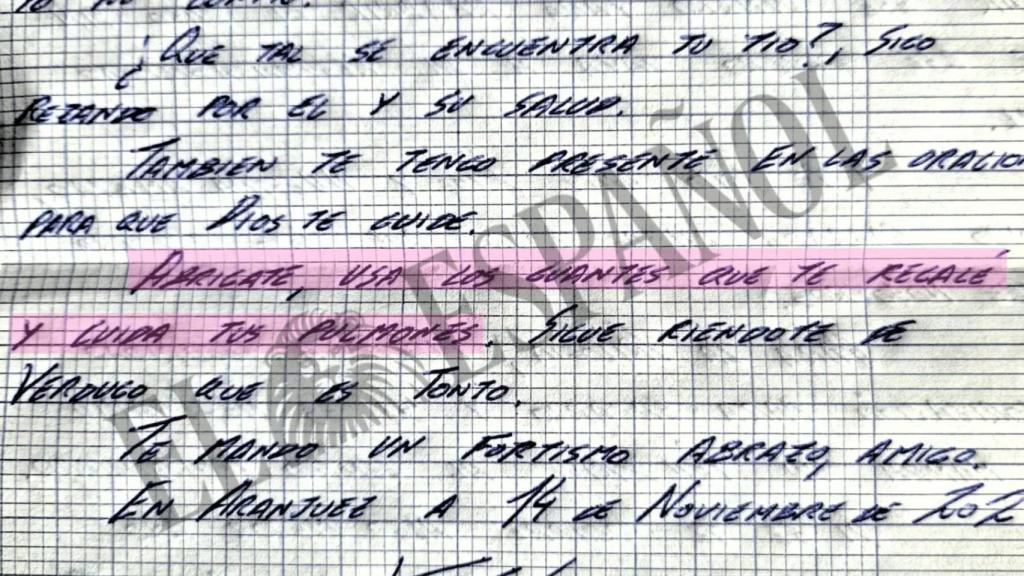 ¿Que tal se encuentra tu tio?, Sigo
Rezando por el y su salud.
Tambien te tengo presente en las oracio
para que Dios te guide.
Abrigate, usa los guantes que te regalé
y cuida tus pulmones. Sigue riendote de
Verdugo que es tonto.
Te mando un fortismo abrazo, amigo.
En Aranjuez a 14 de Noviembre de 202
EL ESPAÑOL